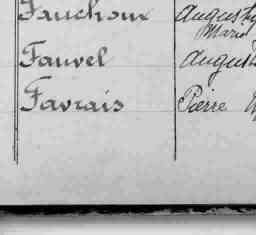 Fauchoux Augustin
Marie
Fauvel August
Favrais Pierre